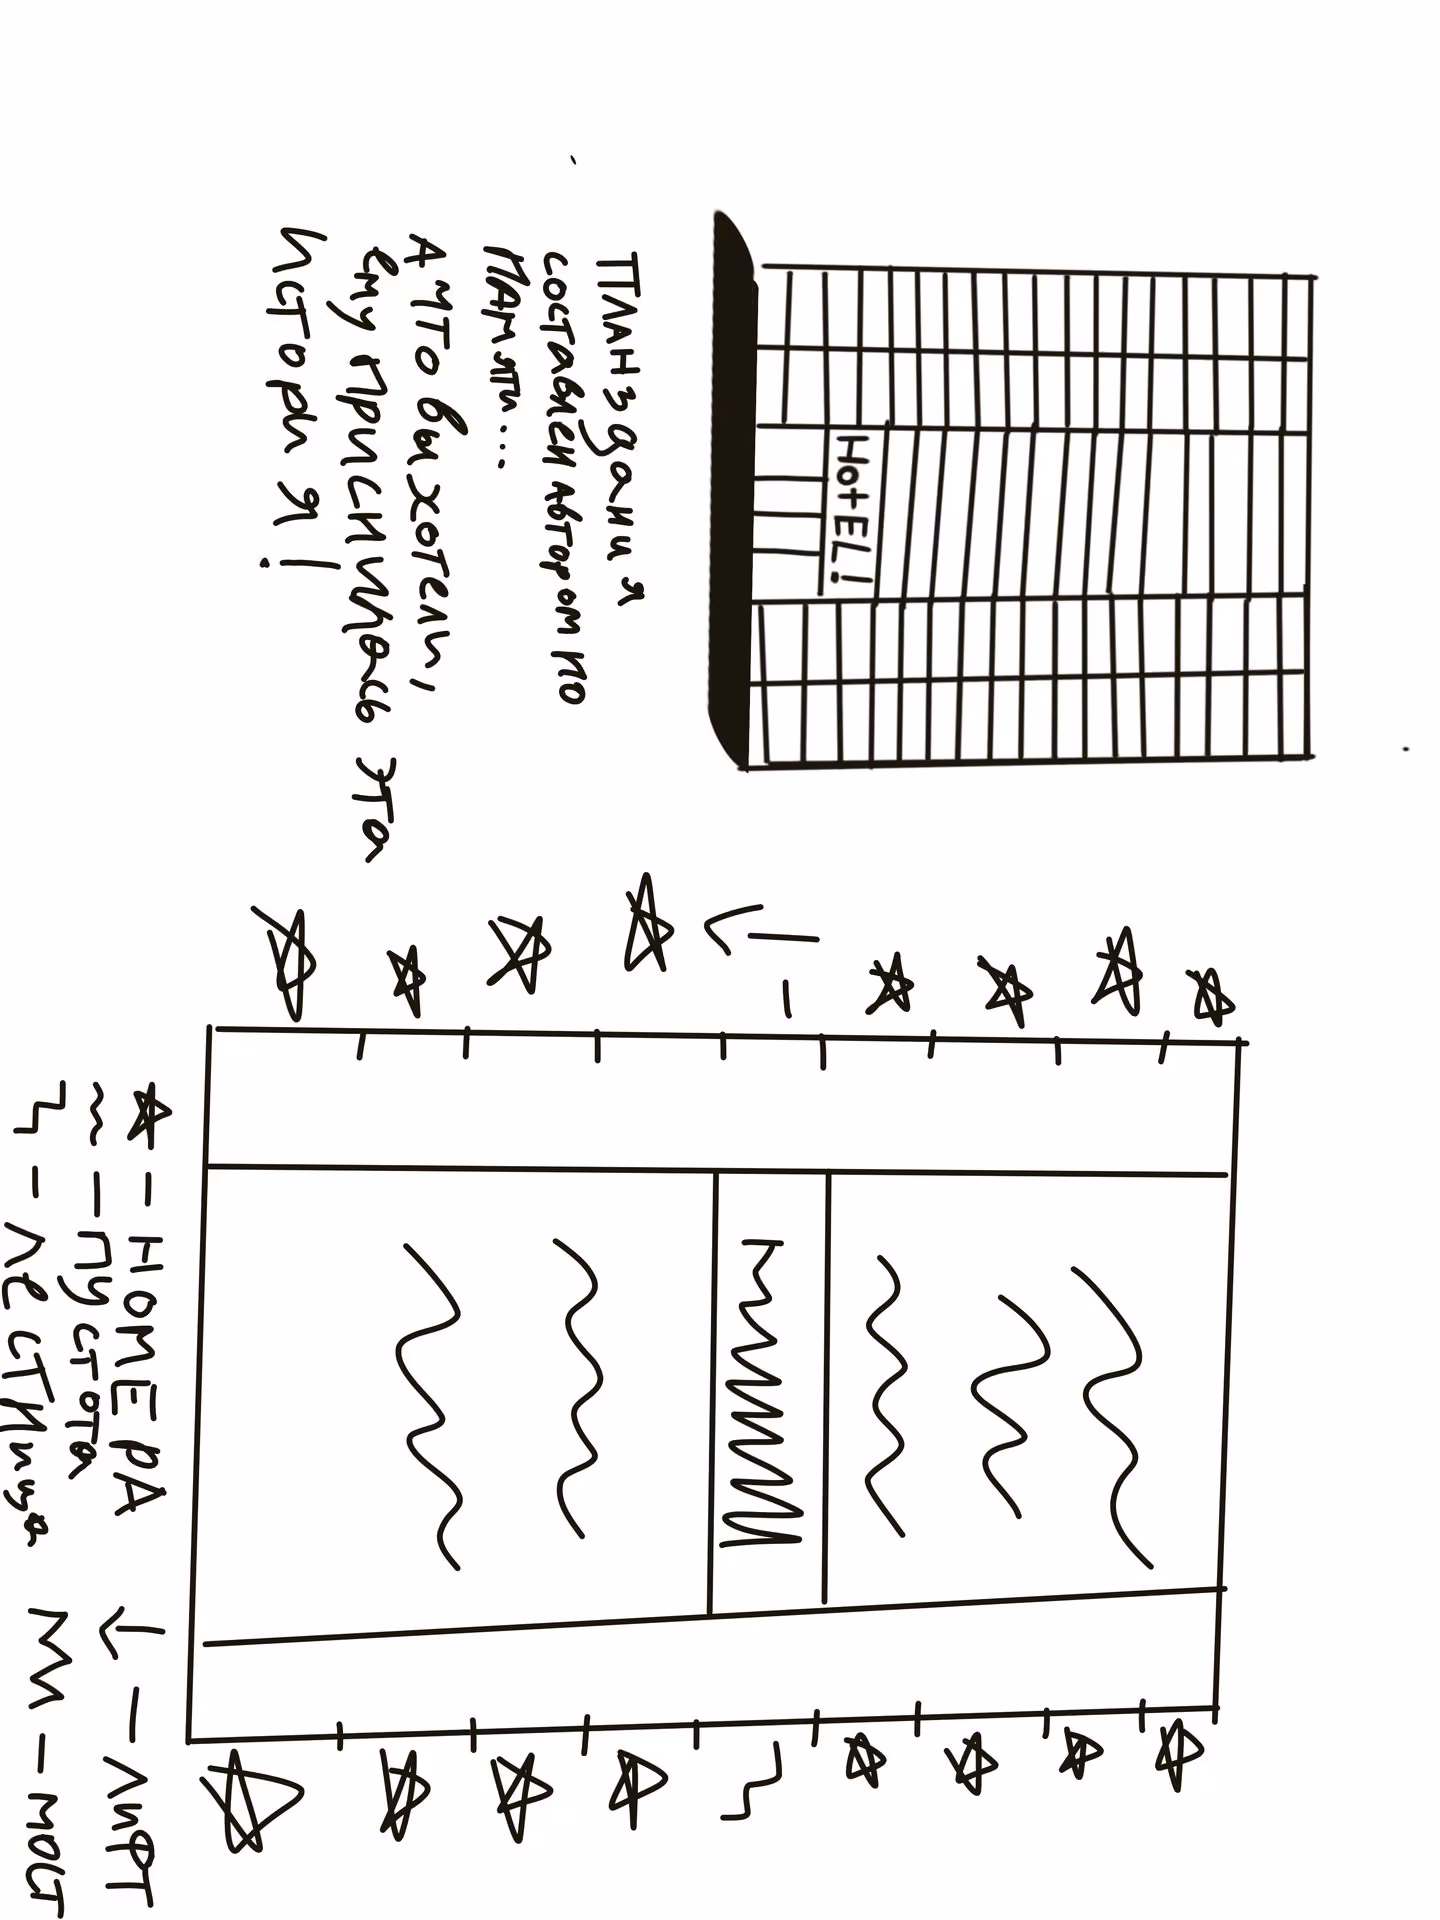 HOTEL!
План здания
составлен автором по
памяти...
А что вы хотели,
ему приснилось эта
история!
- номера
- пустота
- лестница
- лифт
- мост